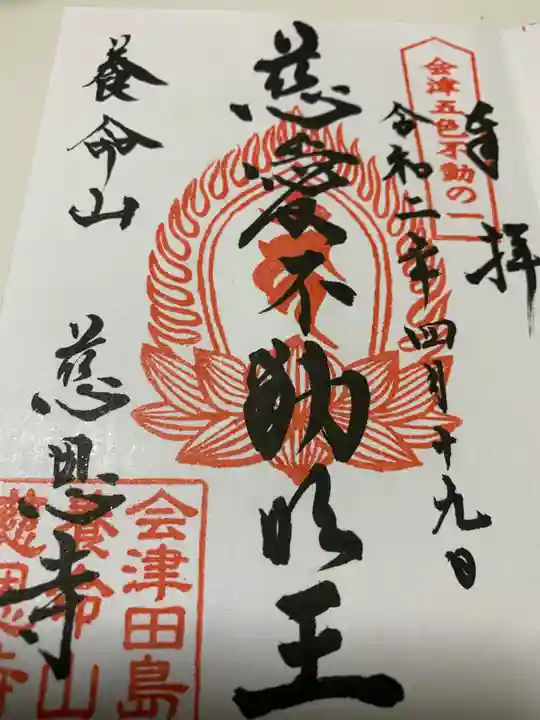 奉拝
会津五色不動の一
令和二年四月十九日
慈愛不動明王
養命山
慈恩寺
会津田島
養命山
慈恩寺